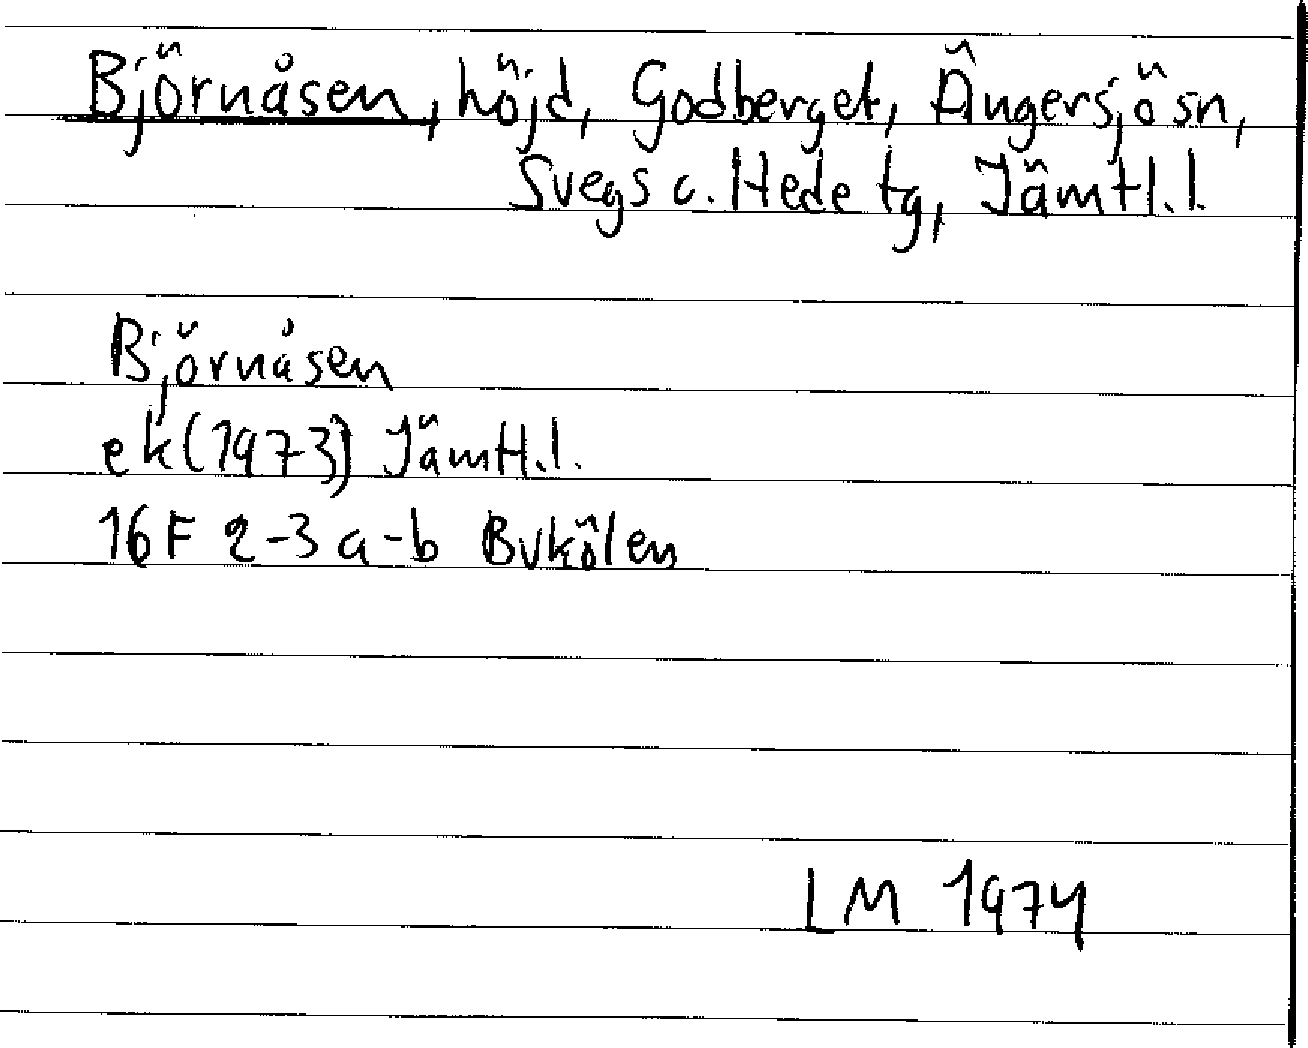 Björnåsen, höjd, Godberget, Ängersjö sn,
Svegs o. Hede tg, Jämtl. l.
Björnåsen
ek (1973) Jämtl. l.
16F 2-3 a-b Bukölen
LM 1974